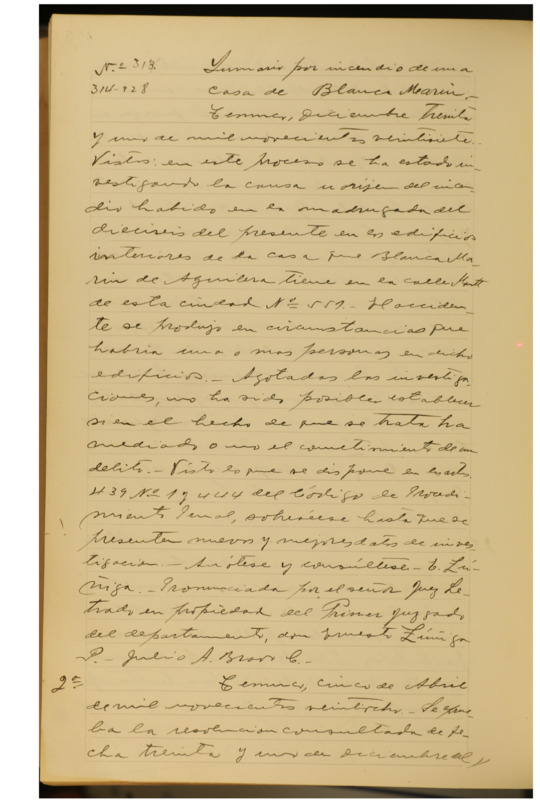 N.º 313. Sumario por incendio de una
314-928 casa de Blanca Marin.-
Temuco, diciembre treinta
y uno de mil novecientos veintisiete.
Vistos: en este proceso se ha estado in-
vestigando la causa u orijen del incen-
dio habido en la madrugada del
dieciseis del presente en los edificios
interiores de la casa que Blanca Ma-
rin de Aguilera tiene en la calle Montt
de esta ciudad Nº 551.- El acciden-
te se produjo en circunstancias que
habria una o mas personas en dicho
edificios.- Agotadas las investiga-
ciones, no ha sido posible establecer
si en el hecho de que se trata ha
mediado o no el cometimiento de un
delito.- Visto lo que se dispone en los arts.
439 Nº 1 y 444 del Código de Procedi-
miento Penal, sobreséese hasta que se
presenten nuevos y mejores datos de inves-
tigacion.- Anótese y consúltese.- E. Zú-
ñiga.- Pronunciada por el señor Juez Le-
trado en propiedad del Primer Juzgado
del departamento, don Ernesto Zúñiga
P.- Julio A. Bravo C.-
2ª Temuco, cinco de Abril
de mil novecientos veintiocho.- Se aprue-
ba la resolucion consultada de fe-
cha treinta y uno de diciembre del